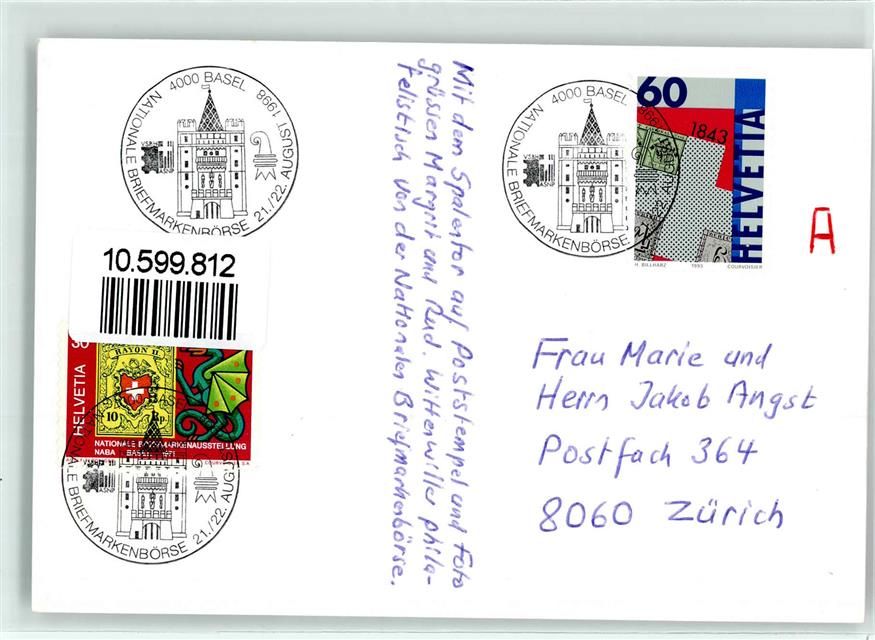 NATIONALE BRIEFMARKENBÖRSE 21./22. AUGUST 1998
4000 BASEL
VSPhV
ASNP
10.599.812
HELVETIA
RAYON II.
10 Rp.
NATIONALE BRIEFMARKENAUSSTELLUNG
NABA BASEL 1971
COURVOISIER S.A.
4000 BASEL
NATIONALE BRIEFMARKENBÖRSE 21./22. AUGUST
ASNP
Mit dem Spalentor auf Poststempel und Foto
grüssen Margrit und Rud. Wittenwiller phila-
telistisch von der Nationalen Briefmarkenbörse.
4000 BASEL
NATIONALE BRIEFMARKENBÖRSE
ASNP
60
1843
HELVETIA
H. BILLHARZ 1993 COURVOISIER
A
Frau Marie und
Herrn Jakob Angst
Postfach 364
8060 Zürich